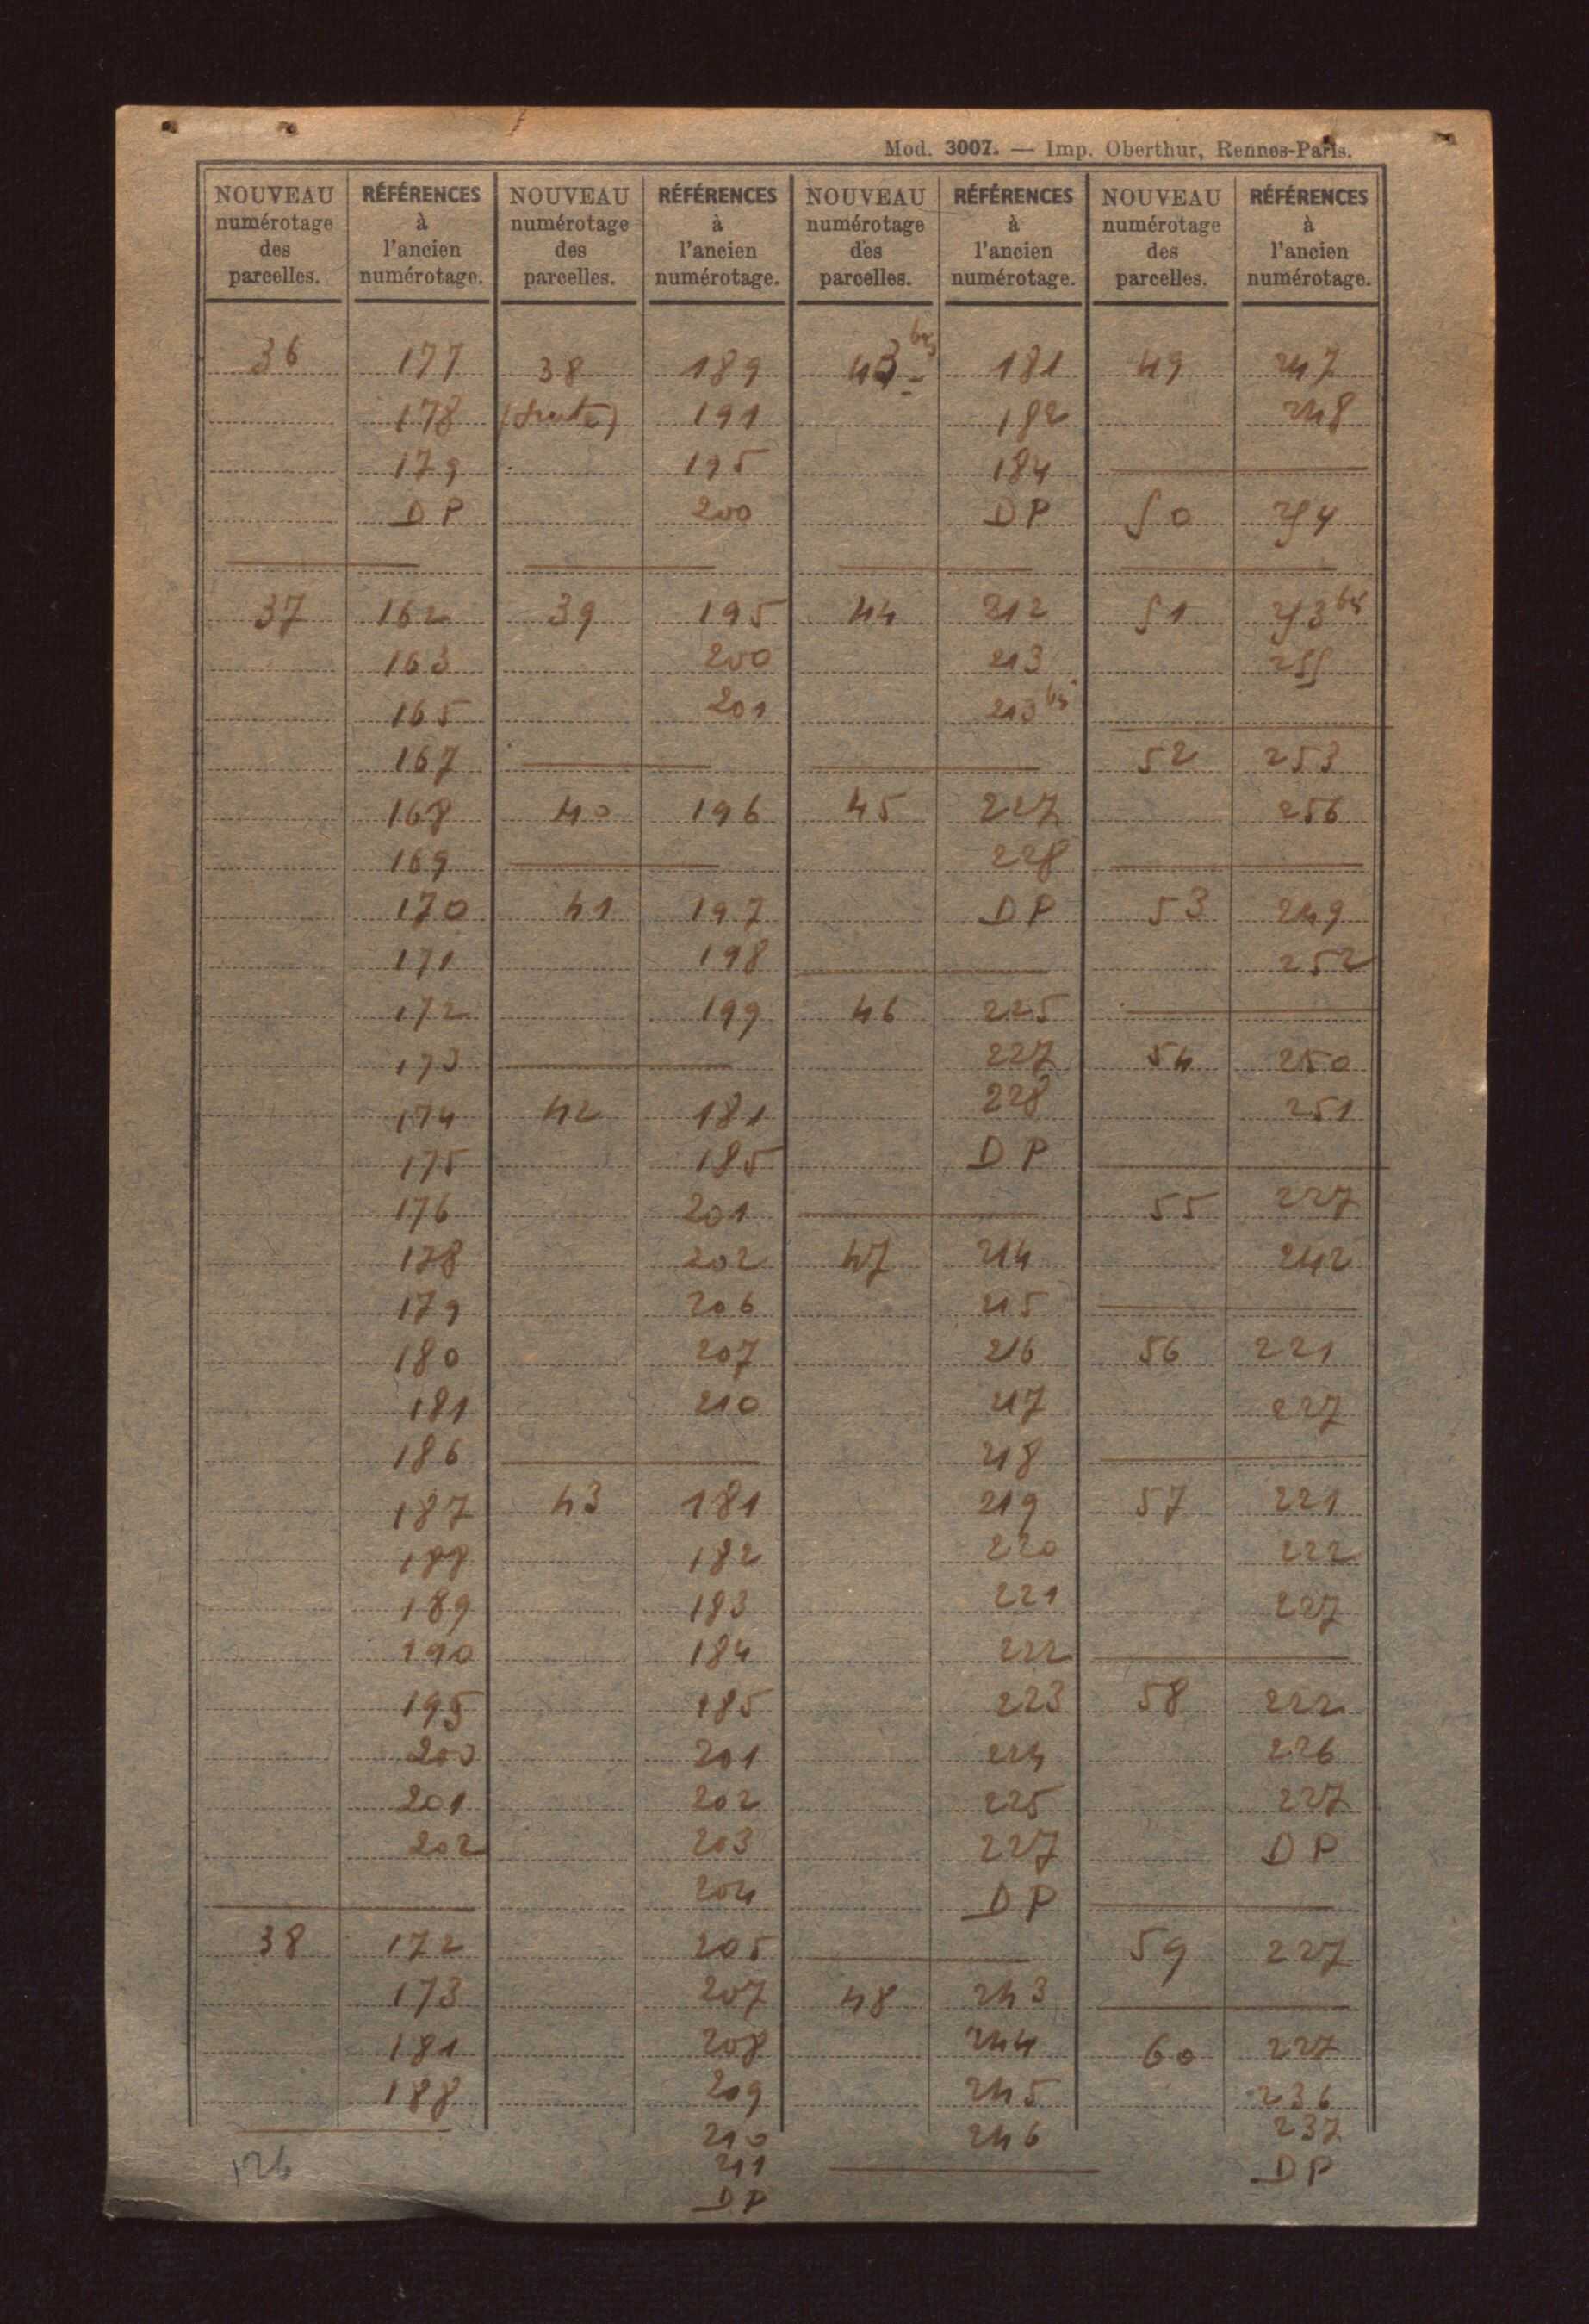 Mod. 3007. — Imp. Oberthur, Rennes-Paris.
NOUVEAU numérotage des parcelles.
RÉFÉRENCES à l'ancien numérotage.
36 177
178
179
DP
37 162
163
165
167
168
169
170
171
172
173
174
175
176
178
179
180
181
186
187
188
189
190
195
200
201
202
38 172
173
181
188
126
NOUVEAU numérotage des parcelles.
RÉFÉRENCES à l'ancien numérotage.
38 189
(suite) 191
195
200
39 195
200
201
40 196
41 197
198
199
42 181
185
201
202
206
207
210
43 181
182
183
184
185
201
202
203
204
205
207
208
209
210
211
DP
NOUVEAU numérotage des parcelles.
RÉFÉRENCES à l'ancien numérotage.
43 bis 181
182
184
DP
44 212
213
213 bis
45 227
228
DP
46 225
227
228
DP
47 214
215
216
217
218
219
220
221
222
223
224
225
227
DP
48 243
244
245
246
NOUVEAU numérotage des parcelles.
RÉFÉRENCES à l'ancien numérotage.
49 247
248
50 254
51 253 bis
255
52 253
256
53 249
252
54 250
251
55 227
242
56 221
227
57 221
222
227
58 222
226
227
DP
59 227
60 227
236
237
DP